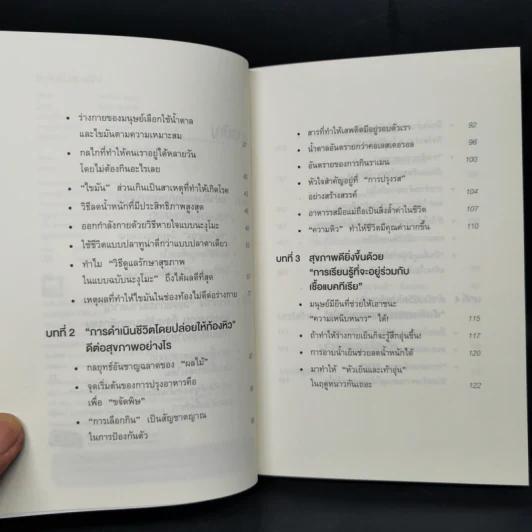 • ร่างกายของมนุษย์เลือกใช้น้ำตาล
และไขมันตามความเหมาะสม
• กลไกที่ทำให้คนเราอยู่ได้หลายวัน
โดยไม่ต้องกินอะไรเลย
• "ไขมัน" ส่วนเกินเป็นสาเหตุที่ทำให้เกิดโรค
• วิธีลดน้ำหนักที่มีประสิทธิภาพสูงสุด
• ออกกำลังกายด้วยวิธีหายใจแบบนะงุโมะ
• ใช้ชีวิตแบบปลาทูน่าดีกว่าแบบปลาตาเดียว
• ทำไม "วิธีดูแลรักษาสุขภาพ
ในแบบฉบับนะงุโมะ" ถึงได้ผลดีที่สุด
• เหตุผลที่ทำให้ไขมันในช่องท้องไม่ดีต่อร่างกาย
บทที่ 2 "การดำเนินชีวิตโดยปล่อยให้ท้องหิว"
ดีต่อสุขภาพอย่างไร
• กลยุทธ์อันชาญฉลาดของ "ผลไม้"
• จุดเริ่มต้นของการปรุงอาหารคือ
เพื่อ "ขจัดพิษ"
• "การเลือกกิน" เป็นสัญชาตญาณ
ในการป้องกันตัว
• สารที่ทำให้เสพติดมีอยู่รอบตัวเรา 92
• น้ำตาลอันตรายกว่าคอเลสเตอรอล 96
• อันตรายของการกินราเมน 100
• หัวใจสำคัญอยู่ที่ "การปรุงรส"
อย่างสร้างสรรค์ 104
• อาหารรสมือแม่ถือเป็นสิ่งล้ำค่าในชีวิต 107
• "ความหิว" ทำให้ชีวิตมีคุณค่ามากขึ้น 110
บทที่ 3 สุขภาพดียิ่งขึ้นด้วย
"การเรียนรู้ที่จะอยู่ร่วมกับ
เชื้อแบคทีเรีย"
• มนุษย์มียีนที่ช่วยให้เอาชนะ
"ความเหน็บหนาว" ได้! 115
• ถ้าทำให้ร่างกายเย็นก็จะรู้สึกอุ่นขึ้น! 117
• การอาบน้ำเย็นช่วยลดน้ำหนักได้ 120
• มาทำให้ "หัวเย็นและเท้าอุ่น"
ในฤดูหนาวกันเถอะ 122